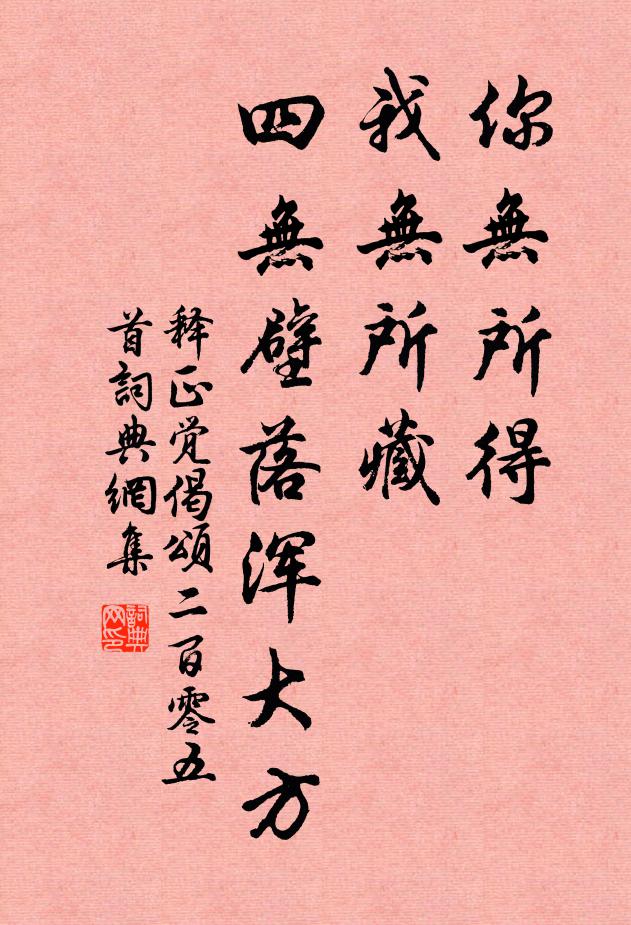 你無所得
我無所藏
四無壁落浑大方
释正覚偈頌二百零五
首詞典網集
詞典
网印